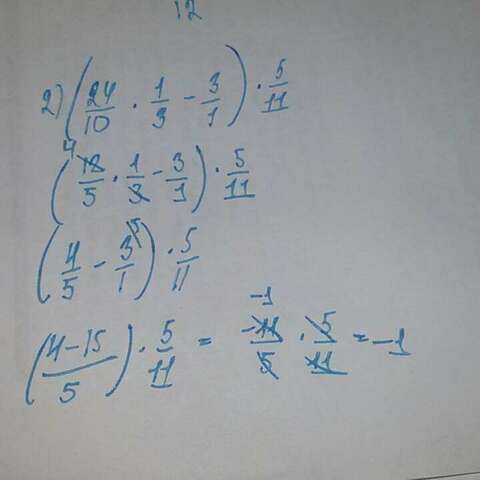 12
2) (24/10 · 1/3 - 3/1) · 5/11
(12/5 · 1/3 - 3/1) · 5/11
4
(4/5 - 3/1) · 5/11
5
((4-15)/5) · 5/11 = -11/5 · 5/11 = -1
-1